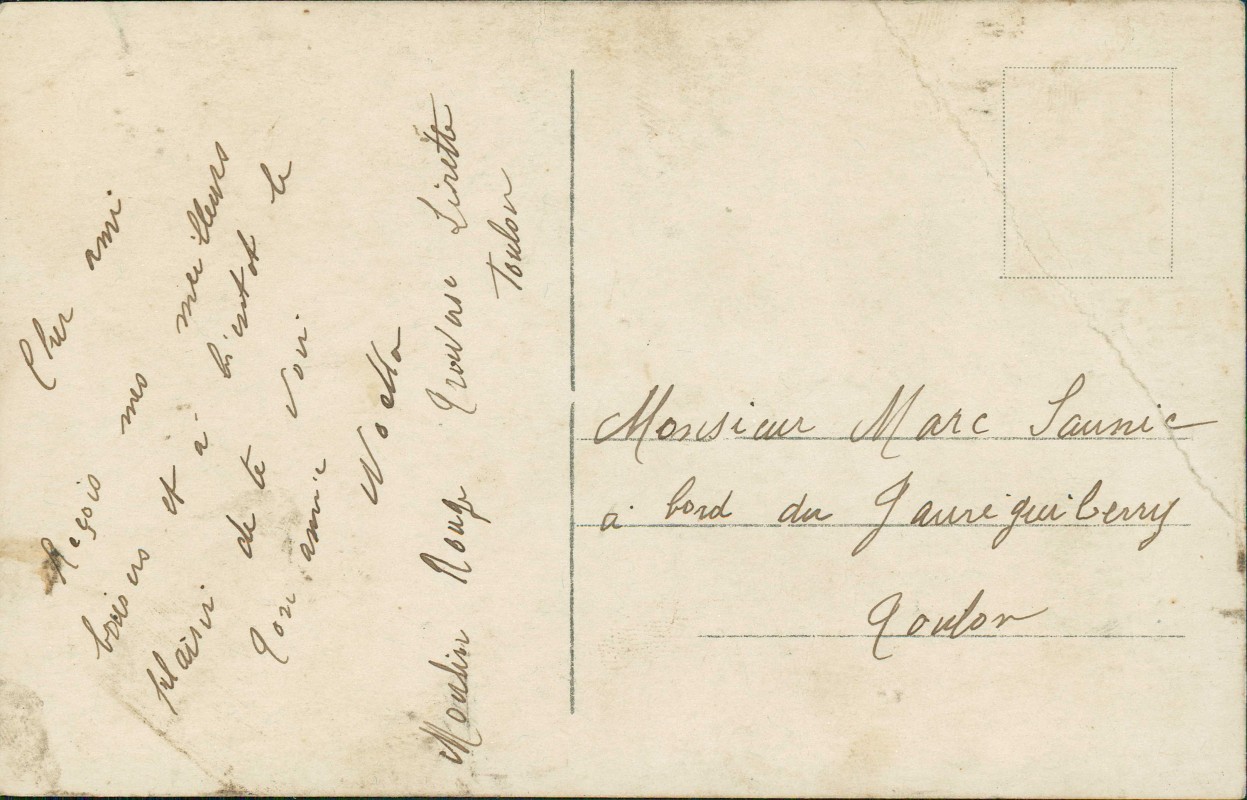 Cher ami
Reçois mes meilleurs
baisers et à bientot le
plaisir de te voir
Ton amie
Moulin Rouge Traverse Lirette
Toulon
Monsieur Marc
à bord du Jauréguiberry
Toulon